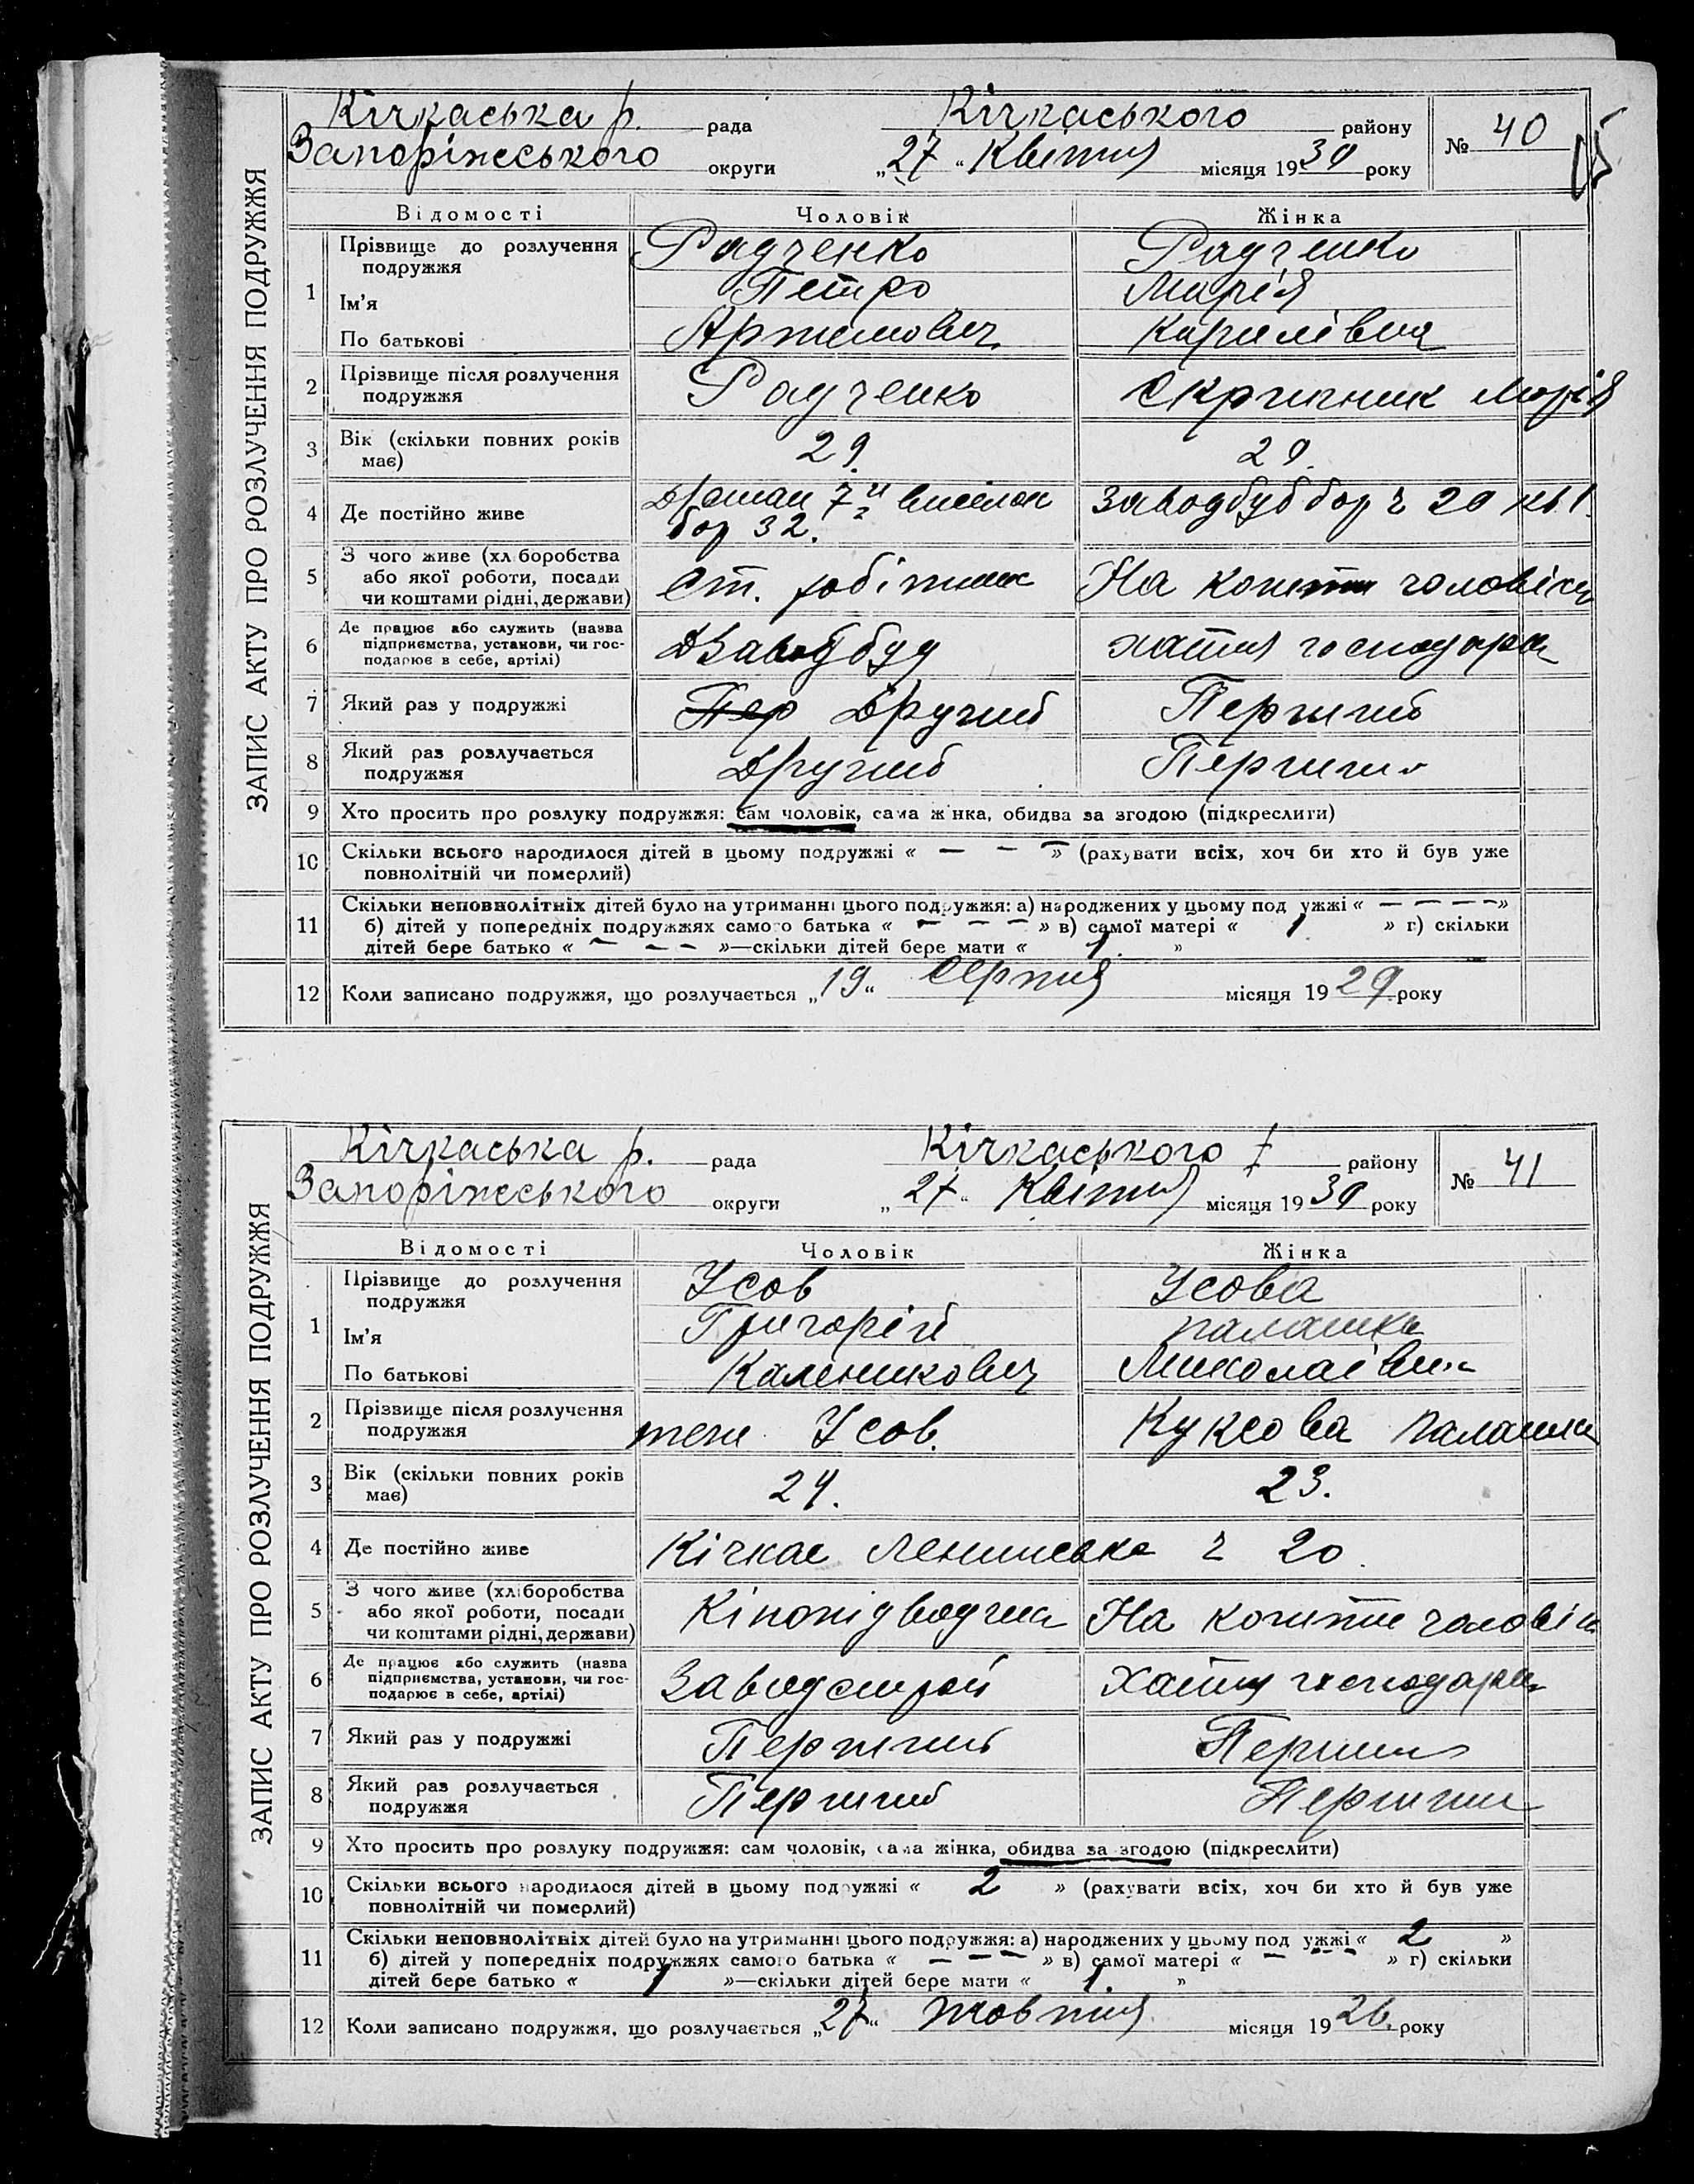 ЗАПИС АКТУ ПРО РОЗЛУЧЕННЯ ПОДРУЖЖЯ
Кічкаська р. рада Кічкаського району № 40
Запоріжеського округи „27“ Квітня місяця 1930 року
Відомості Чоловік Жінка
1 Прізвище до розлучення подружжя Радченко Радченко
Ім'я Петро Марія
По батькові Артемович Кирилівна
2 Прізвище після розлучення подружжя Радченко Скрипник Марія
3 Вік (скільки повних років має) 29. 29.
4 Де постійно живе 7 виселок Заводбуд бар ч 20 кв 1.
бар 32.
5 З чого живе (хліборобства або якої роботи, посади чи коштами рідні, держави) Ст. робітник На кошти чоловіка
6 Де працює або служить (назва підприємства, установи, чи господарює в себе, артілі) Заводбуд хатня господарка
7 Який раз у подружжі Пер Другий Перший
8 Який раз розлучається подружжя Другий Перший
9 Хто просить про розлуку подружжя: сам чоловік, сама жінка, обидва за згодою (підкреслити)
10 Скільки всього народилося дітей в цьому подружжі « — — — » (рахувати всіх, хоч би хто й був уже
повнолітній чи померлий)
11 Скільки неповнолітніх дітей було на утриманні цього подружжя: а) народжених у цьому подружжі « — — — — »
б) дітей у попередніх подружжях самого батька « — — — » в) самої матері « 1 » г) скільки
дітей бере батько « — — — »—скільки дітей бере мати « 1. »
12 Коли записано подружжя, що розлучається „19“ Серпня місяця 1929 року
ЗАПИС АКТУ ПРО РОЗЛУЧЕННЯ ПОДРУЖЖЯ
Кічкаська р. рада Кічкаського району № 41
Запоріжеського округи „27“ Квітня місяця 1930 року
Відомості Чоловік Жінка
1 Прізвище до розлучення подружжя Усов Усова
Ім'я Григорій Палашка
По батькові Каленикович Миколаівна
2 Прізвище після розлучення подружжя теж Усов. Куксова Палашка
3 Вік (скільки повних років має) 24. 23.
4 Де постійно живе Кічкас Ленинська ч 20.
5 З чого живе (хліборобства або якої роботи, посади чи коштами рідні, держави) На кошти чоловіка
6 Де працює або служить (назва підприємства, установи, чи господарює в себе, артілі) Заводстрой Хатня господарка
7 Який раз у подружжі Перший Перший
8 Який раз розлучається подружжя Перший Перший
9 Хто просить про розлуку подружжя: сам чоловік, сама жінка, обидва за згодою (підкреслити)
10 Скільки всього народилося дітей в цьому подружжі « 2 » (рахувати всіх, хоч би хто й був уже
повнолітній чи померлий)
11 Скільки неповнолітніх дітей було на утриманні цього подружжя: а) народжених у цьому подружжі « 2 »
б) дітей у попередніх подружжях самого батька « — — — » в) самої матері « — — — » г) скільки
дітей бере батько « 1 »—скільки дітей бере мати « 1. »
12 Коли записано подружжя, що розлучається „27“ Жовтня місяця 1926 року